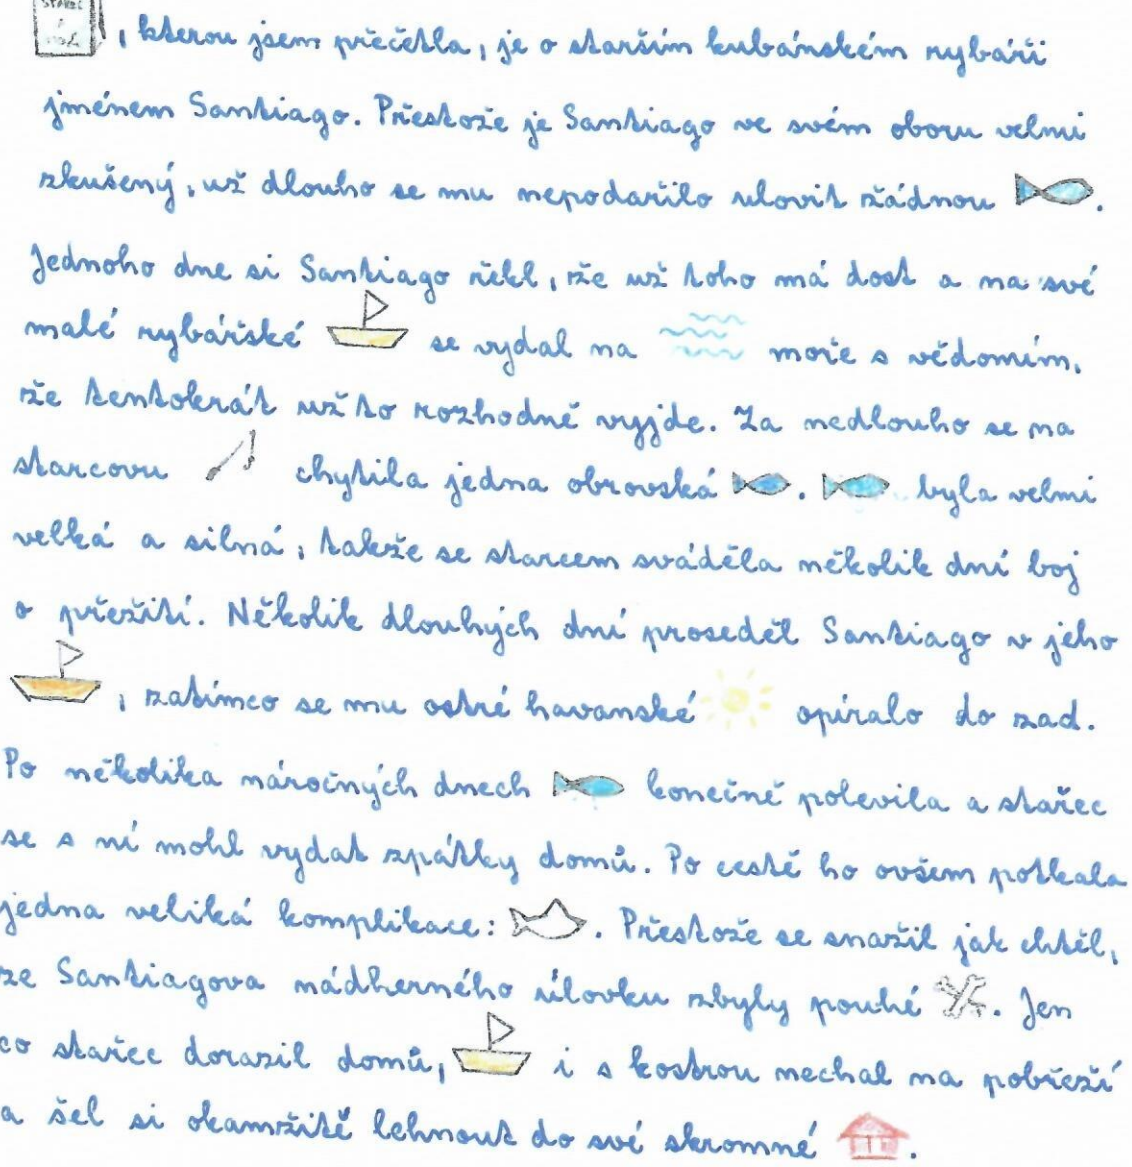 STAREC A MOŘE
, kterou jsem přečetla, je o starším kubánském rybáři
jménem Santiago. Přestože je Santiago ve svém oboru velmi
zkušený, už dlouho se mu nepodařilo ulovit žádnou .
Jednoho dne si Santiago řekl, že už toho má dost a na své
malé rybářské se vydal na moře s vědomím,
že tentokrát už to rozhodně vyjde. Za nedlouho se na
starcovu chytila jedna obrovská . byla velmi
velká a silná, takže se starcem sváděla několik dní boj
o přežití. Několik dlouhých dní proseděl Santiago v jeho
, zatímco se mu ostré havanské opíralo do zad.
Po několika náročných dnech konečně polevila a stařec
se s ní mohl vydat zpátky domů. Po cestě ho ovšem potkala
jedna veliká komplikace: . Přestože se snažil jak chtěl,
ze Santiagova nádherného úlovku zbyly pouhé . Jen
co stařec dorazil domů, i s kostrou nechal na pobřeží
a šel si okamžitě lehnout do své skromné .